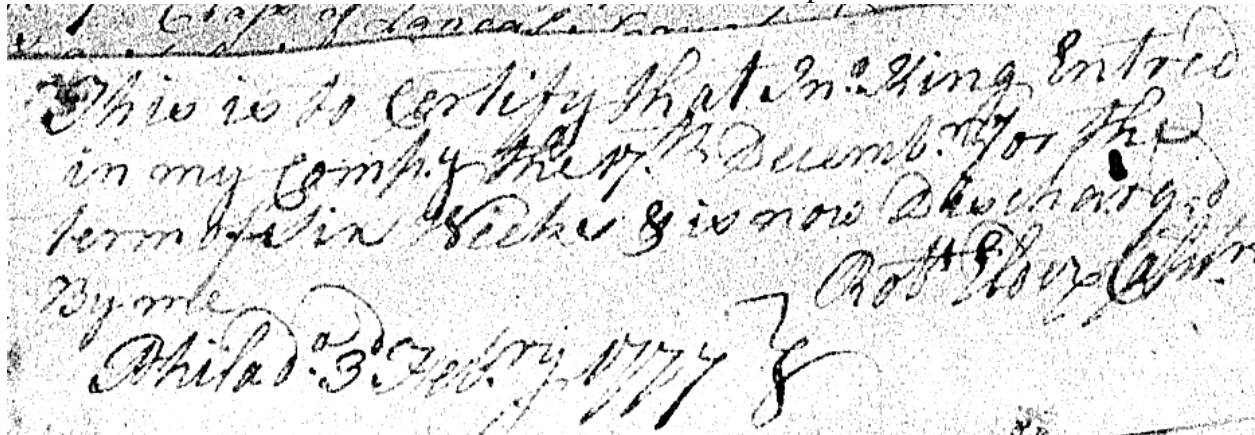 of Lancas
This is to Certify that Jno. King Entred
in my Compy. the 17th. Decembr. for the
term of Six Weeks & is now Discharged
By me
Robt. Capt.
Philada. 3d. Febry. 1777